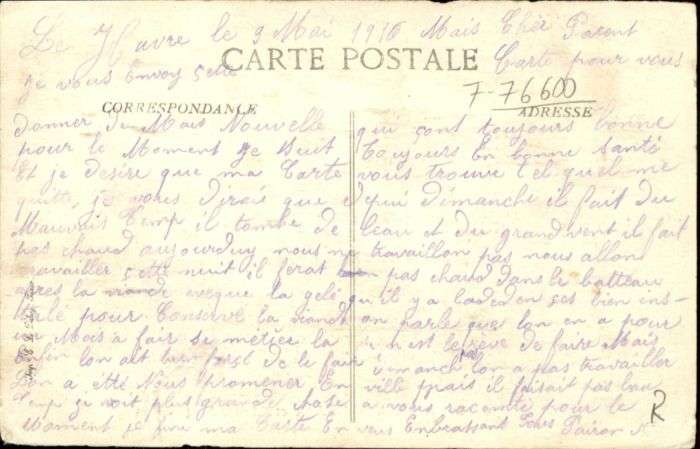 Le Havre le 9 Mai 1916 Mais Chée Parent
CARTE POSTALE
je vous Envoy sette Carte pour vous
7-76600
CORRESPONDANCE
ADRESSE
donner de Mais Nouvelle qui sont toujours bonne
pour le Moment je suit toujours En bonne santé
Et je desire que ma Carte vous trouve tel quel me
quitte, je vous dirais que depui dimanche il fait du
Mauvais temp il tombe de leau et du grand vent il fait
pas chaud aujourduy nous ne travaillon pas nous allon
travailler sette nuit il ferat pas chaud dans le batteau
apres la viande aveque la gelé qu il y a ladedan ses bien ins-
talé pour Conserve la viande on parle que lon en a pour
Mois à fair se métier la de faire Mais
Enfin lon est bien forcé de le fair dimanche lon a pas travailler
Lon a étté Nous promener En ville Mais il faisait pas bau
temp je voit plus grande chose a vous raconté pour le
Moment je fini ma Carte En vous Embrassant
R